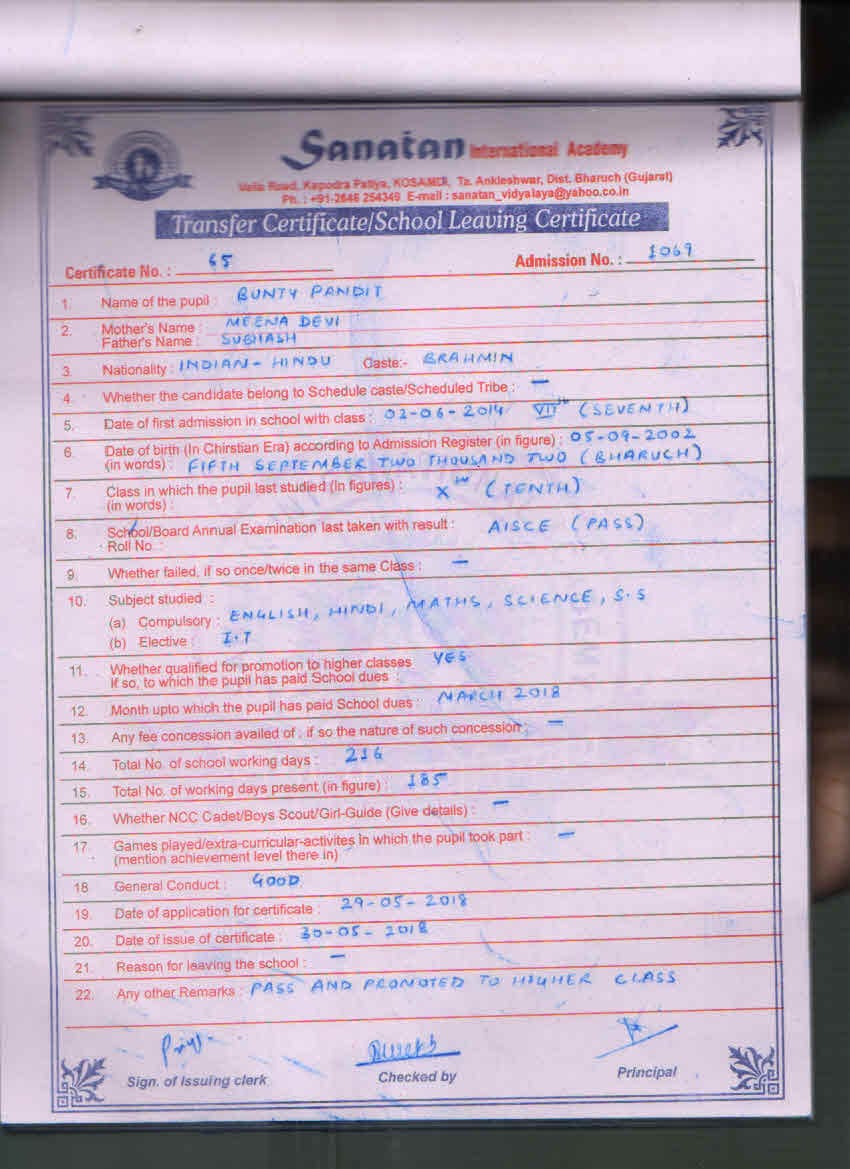 Sanatan International Academy
Valia Road, Kapodra Patiya, KOSAMDI, Ta. Ankleshwar, Dist. Bharuch (Gujarat)
Ph. : +91-2646 254349 E-mail : sanatan_vidyalaya@yahoo.co.in
Transfer Certificate/School Leaving Certificate
Certificate No. : 65 Admission No. : 1069
1. Name of the pupil : BUNTY PANDIT
2. Mother's Name : MEENA DEVI
Father's Name : SUBHASH
3. Nationality : INDIAN - HINDU Caste:- BRAHMIN
4. Whether the candidate belong to Schedule caste/Scheduled Tribe : —
5. Date of first admission in school with class : 02-06-2014 VIIth (SEVENTH)
6. Date of birth (In Chirstian Era) according to Admission Register (in figure) : 05-09-2002
(in words) : FIFTH SEPTEMBER TWO THOUSAND TWO (BHARUCH)
7. Class in which the pupil last studied (In figures) : Xth (TENTH)
(in words) :
8. School/Board Annual Examination last taken with result : AISCE (PASS)
Roll No. :
9. Whether failed, if so once/twice in the same Class : —
10. Subject studied :
(a) Compulsory : ENGLISH, HINDI, MATHS, SCIENCE, S.S
(b) Elective : I.T
11. Whether qualified for promotion to higher classes YES
If so, to which the pupil has paid School dues :
12. Month upto which the pupil has paid School dues : MARCH 2018
13. Any fee concession availed of : if so the nature of such concession : —
14. Total No. of school working days : 216
15. Total No. of working days present (in figure) : 185
16. Whether NCC Cadet/Boys Scout/Girl-Guide (Give details) : —
17. Games played/extra-curricular-activites in which the pupil took part : —
(mention achievement level there in)
18 General Conduct : GOOD
19. Date of application for certificate : 29-05-2018
20. Date of issue of certificate : 30-05-2018
21. Reason for leaving the school : —
22. Any other Remarks : PASS AND PROMOTED TO HIGHER CLASS
Sign. of Issuing clerk Checked by Principal